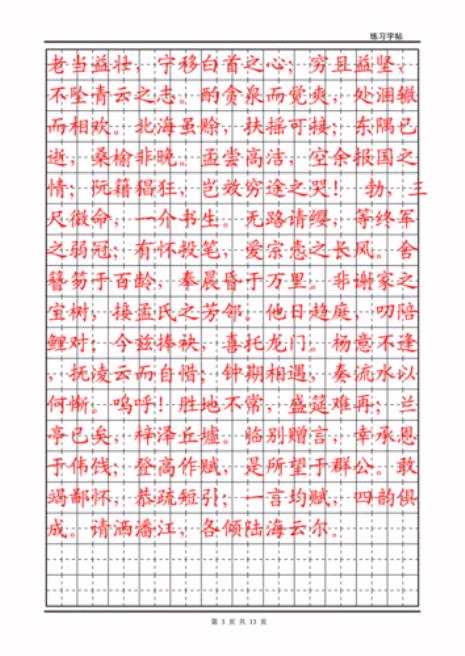 练习字帖
老当益壮，宁移白首之心；穷且益坚，
不坠青云之志。酌贪泉而觉爽，处涸辙
而相欢。北海虽赊，扶摇可接；东隅已
逝，桑榆非晚。孟尝高洁，空余报国之
情；阮籍猖狂，岂效穷途之哭！勃，三
尺微命，一介书生。无路请缨，等终军
之弱冠；有怀投笔，爱宗悫之长风。舍
簪笏于百龄，奉晨昏于万里。非谢家之
宝树，接孟氏之芳邻。他日趋庭，叨陪
鲤对；今兹捧袂，喜托龙门。杨意不逢
，抚凌云而自惜；钟期相遇，奏流水以
何惭。呜呼！胜地不常，盛筵难再；兰
亭已矣，梓泽丘墟。临别赠言，幸承恩
于伟饯；登高作赋，是所望于群公。敢
竭鄙怀，恭疏短引；一言均赋，四韵俱
成。请洒潘江，各倾陆海云尔。
第 3 页 共 13 页